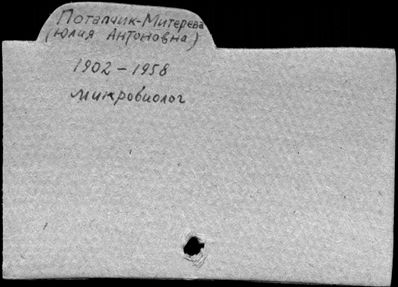 Потапчик-Митерева
(Юлия Антоновна)
1902-1958
микробиолог